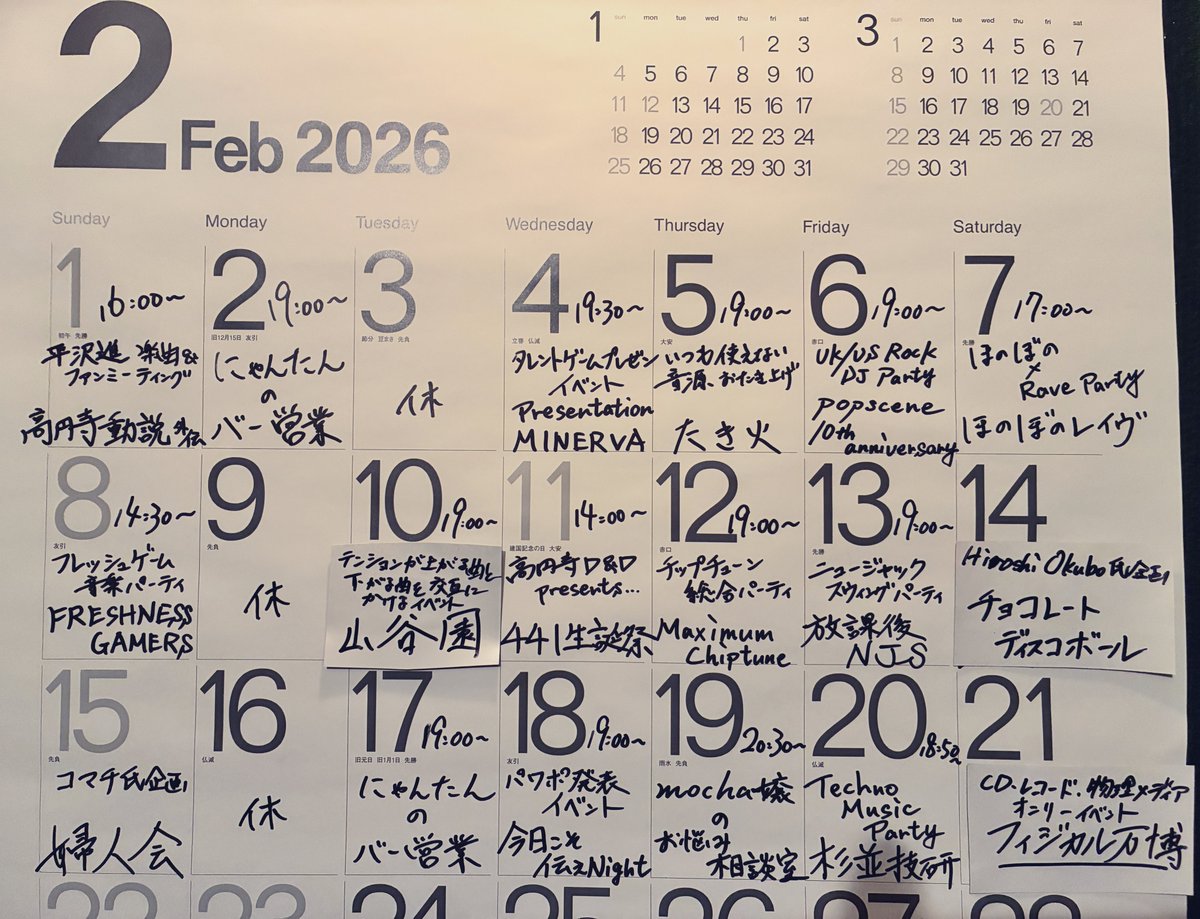 2
Feb 2026
1
sun mon tue wed thu fri sat
1 2 3
4 5 6 7 8 9 10
11 12 13 14 15 16 17
18 19 20 21 22 23 24
25 26 27 28 29 30 31
3
sun mon tue wed thu fri sat
1 2 3 4 5 6 7
8 9 10 11 12 13 14
15 16 17 18 19 20 21
22 23 24 25 26 27 28
29 30 31
Sunday Monday Tuesday Wednesday Thursday Friday Saturday
1 16:00~
初午 先勝
平沢進 楽曲&
ファンミーティング
高円寺動説外伝
2 19:00~
旧12月15日 友引
にゃんたん
の
バー営業
3
節分 豆まき 先負
休
4 19:30~
立春 仏滅
タレントゲームプレゼン
イベント
Presentation
MINERVA
5 19:00~
大安
いつか使えない
音源、おたき上げ
たき火
6 19:00~
赤口
UK/US Rock
DJ Party
popscene
10th
anniversary
7 17:00~
先勝
ほのぼの
×
Rave Party
ほのぼのレイヴ
8 14:30~
友引
フレッシュゲーム
音楽パーティ
FRESHNESS
GAMERS
9
先負
休
10 19:00~
テンションが上がる曲と
下がる曲を交互に
かけるイベント
山谷園
11 14:00~
建国記念の日 大安
高円寺D&D
presents...
441生誕祭
12 19:00~
赤口
チップチューン
総合パーティ
Maximum
Chiptune
13 19:00~
先勝
ニュージャック
スウィングパーティ
放課後
NJS
14
Hiroshi Okubo氏企画
チョコレート
ディスコボール
15
先負
コマチ氏企画
婦人会
16
仏滅
休
17 19:00~
旧元日 旧1月1日 先勝
にゃんたん
の
バー営業
18 19:00~
友引
パワポ発表
イベント
今日こそ
伝えNight
19 20:30~
雨水 先負
mocha嬢
の
お悩み
相談室
20 18:50~
仏滅
Techno
Music
Party
杉並技研
21
CD・レコード・物理メディア
オンリーイベント
フィジカル万博
22 23 24 25 26 27 28